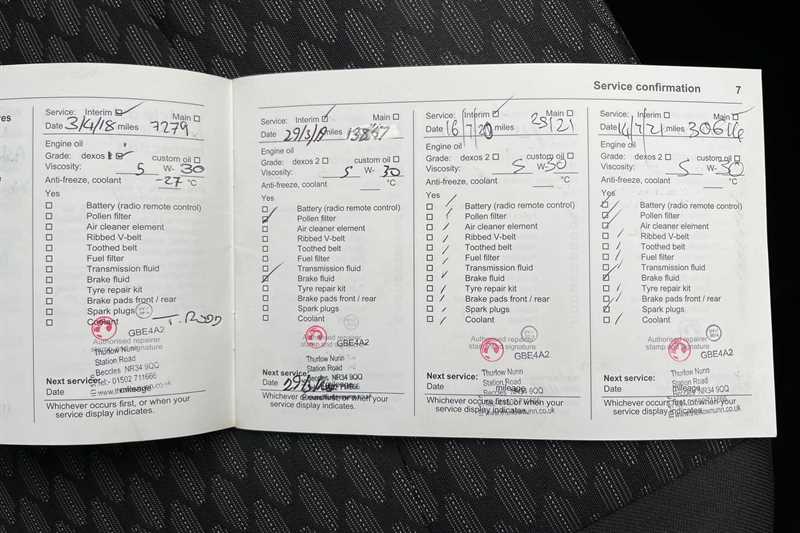 Service confirmation 7
Service: Interim Main
Date 3/4/18 miles 7279
Engine oil
Grade: dexos 1 custom oil
Viscosity: 5 W- 30
Anti-freeze, coolant -27 °C
Yes
Battery (radio remote control)
Pollen filter
Air cleaner element
Ribbed V-belt
Toothed belt
Fuel filter
Transmission fluid
Brake fluid
Tyre repair kit
Brake pads front / rear
Spark plugs
Coolant
GBE4A2
Authorised repairer
stamp and signature
Thurlow Nunn
Station Road
Beccles NR34 9QQ
Tel: 01502 711666
www.thurlownunn.co.uk
Next service:
Date mileage
Whichever occurs first, or when your
service display indicates.
Service: Interim Main
Date 29/3/19 miles
Engine oil
Grade: dexos 2 custom oil
Viscosity: 5 W- 30
Anti-freeze, coolant °C
Yes
Battery (radio remote control)
Pollen filter
Air cleaner element
Ribbed V-belt
Toothed belt
Fuel filter
Transmission fluid
Brake fluid
Tyre repair kit
Brake pads front / rear
Spark plugs
Coolant
GBE4A2
Authorised repairer
stamp and signature
Thurlow Nunn
Station Road
Beccles NR34 9QQ
Next service:
Date
Whichever occurs first, or when your
service display indicates.
Service: Interim Main
Date 16/7/20 miles
Engine oil
Grade: dexos 2 custom oil
Viscosity: 5 W- 30
Anti-freeze, coolant °C
Yes
Battery (radio remote control)
Pollen filter
Air cleaner element
Ribbed V-belt
Toothed belt
Fuel filter
Transmission fluid
Brake fluid
Tyre repair kit
Brake pads front / rear
Spark plugs
Coolant
GBE4A2
Authorised repairer
stamp and signature
Thurlow Nunn
Station Road
Beccles NR34 9QQ
Next service:
Date mileage
Whichever occurs first, or when your
service display indicates.
Service: Interim Main
Date 14/7/21 miles
Engine oil
Grade: dexos 2 custom oil
Viscosity: 5 W- 30
Anti-freeze, coolant °C
Yes
Battery (radio remote control)
Pollen filter
Air cleaner element
Ribbed V-belt
Toothed belt
Fuel filter
Transmission fluid
Brake fluid
Tyre repair kit
Brake pads front / rear
Spark plugs
Coolant
GBE4A2
Authorised repairer
stamp and signature
Thurlow Nunn
Station Road
Beccles NR34 9QQ
www.thurlownunn.co.uk
Next service:
Date mileage
Whichever occurs first, or when your
service display indicates.